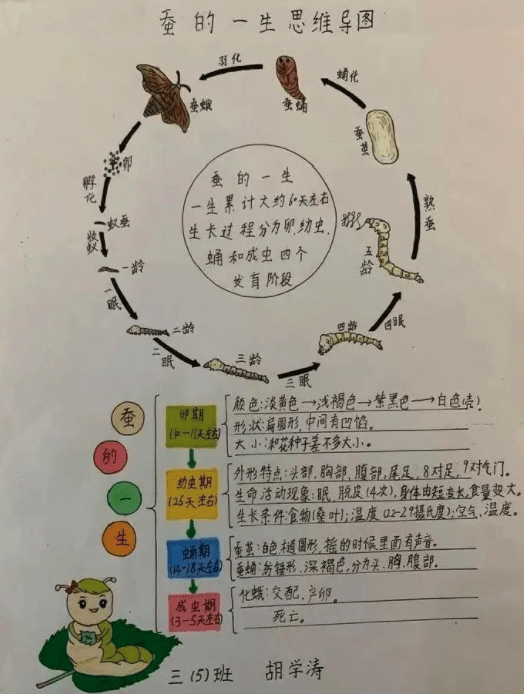 蚕的一生思维导图
羽化
蛹化
蚕蛾
蚕蛹
蚕茧
卵
孵化
蚁蚕
收蚁
一龄
一眠
二龄
二眠
三龄
三眠
四龄
四眠
五龄
熟蚕
蚕的一生
一生累计大约60天左右
生长过程分为卵、幼虫、
蛹和成虫四个
发育阶段
蚕
的
一
生
卵期
(10-11天左右)
颜色:淡黄色→浅褐色→紫黑色→白色(壳)
形状:扁圆形,中间有凹馅。
大小:和花种子差不多大小。
幼虫期
(25天左右)
外形特点:头部,胸部,腹部,尾足,8对足,9对气门。
生命活动现象:眠,脱皮(4次),身体由短变长,食量变大。
生长条件:食物(桑叶);温度(22-29摄氏度);空气、湿度。
虫蛹期
(14-18天左右)
蚕茧:白色椭圆形,摇的时候里面有声音。
蚕蛹:纺锤形,深褐色,分为头、胸、腹部。
成虫期
(3-5天左右)
化蛾:交配、产卵。
死亡。
三(5)班 胡学涛